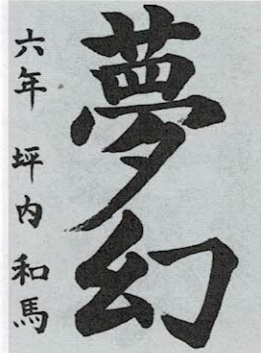 夢幻
六年 坪内 和馬